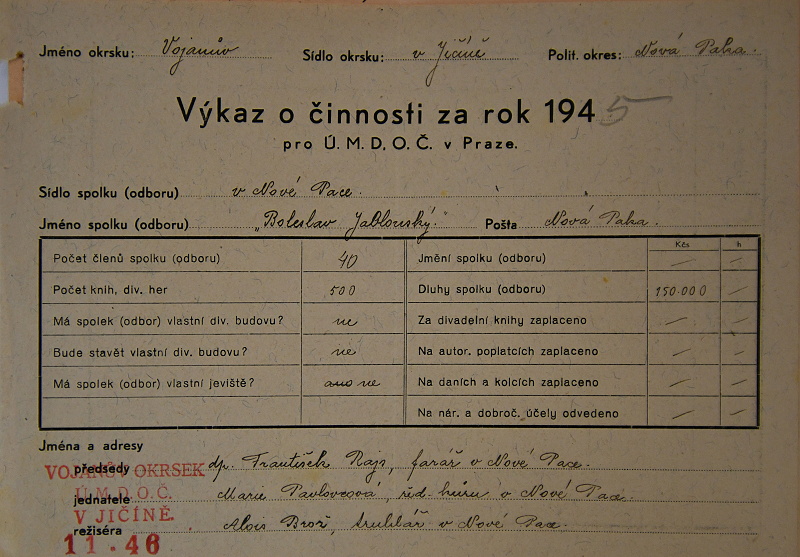 Jméno okrsku: Vojanův Sídlo okrsku: v Jičíně Polit. okres: Nová Paka.
Výkaz o činnosti za rok 1945
pro Ú. M. D. O. Č. v Praze.
Sídlo spolku (odboru) v Nové Pace.
Jméno spolku (odboru) „Boleslav Jablonský." Pošta Nová Paka.
Kčs h
Počet členů spolku (odboru) 40 Jmění spolku (odboru) — —
Počet knih, div. her 500 Dluhy spolku (odboru) 150.000 —
Má spolek (odbor) vlastní div. budovu? ne Za divadelní knihy zaplaceno — —
Bude stavět vlastní div. budovu? ne Na autor. poplatcích zaplaceno — —
Má spolek (odbor) vlastní jeviště? ano ne Na daních a kolcích zaplaceno — —
Na nár. a dobroč. účely odvedeno — —
Jména a adresy
předsedy dp. František Rajs, farář v Nové Pace.
VOJANŮV OKRSEK
jednatele Marie Pavlovcová, řed. kůru v Nové Pace.
Ú.M.D.O.Č.
V JIČÍNĚ.
režiséra Alois Brož, truhlář v Nové Pace.
11.46